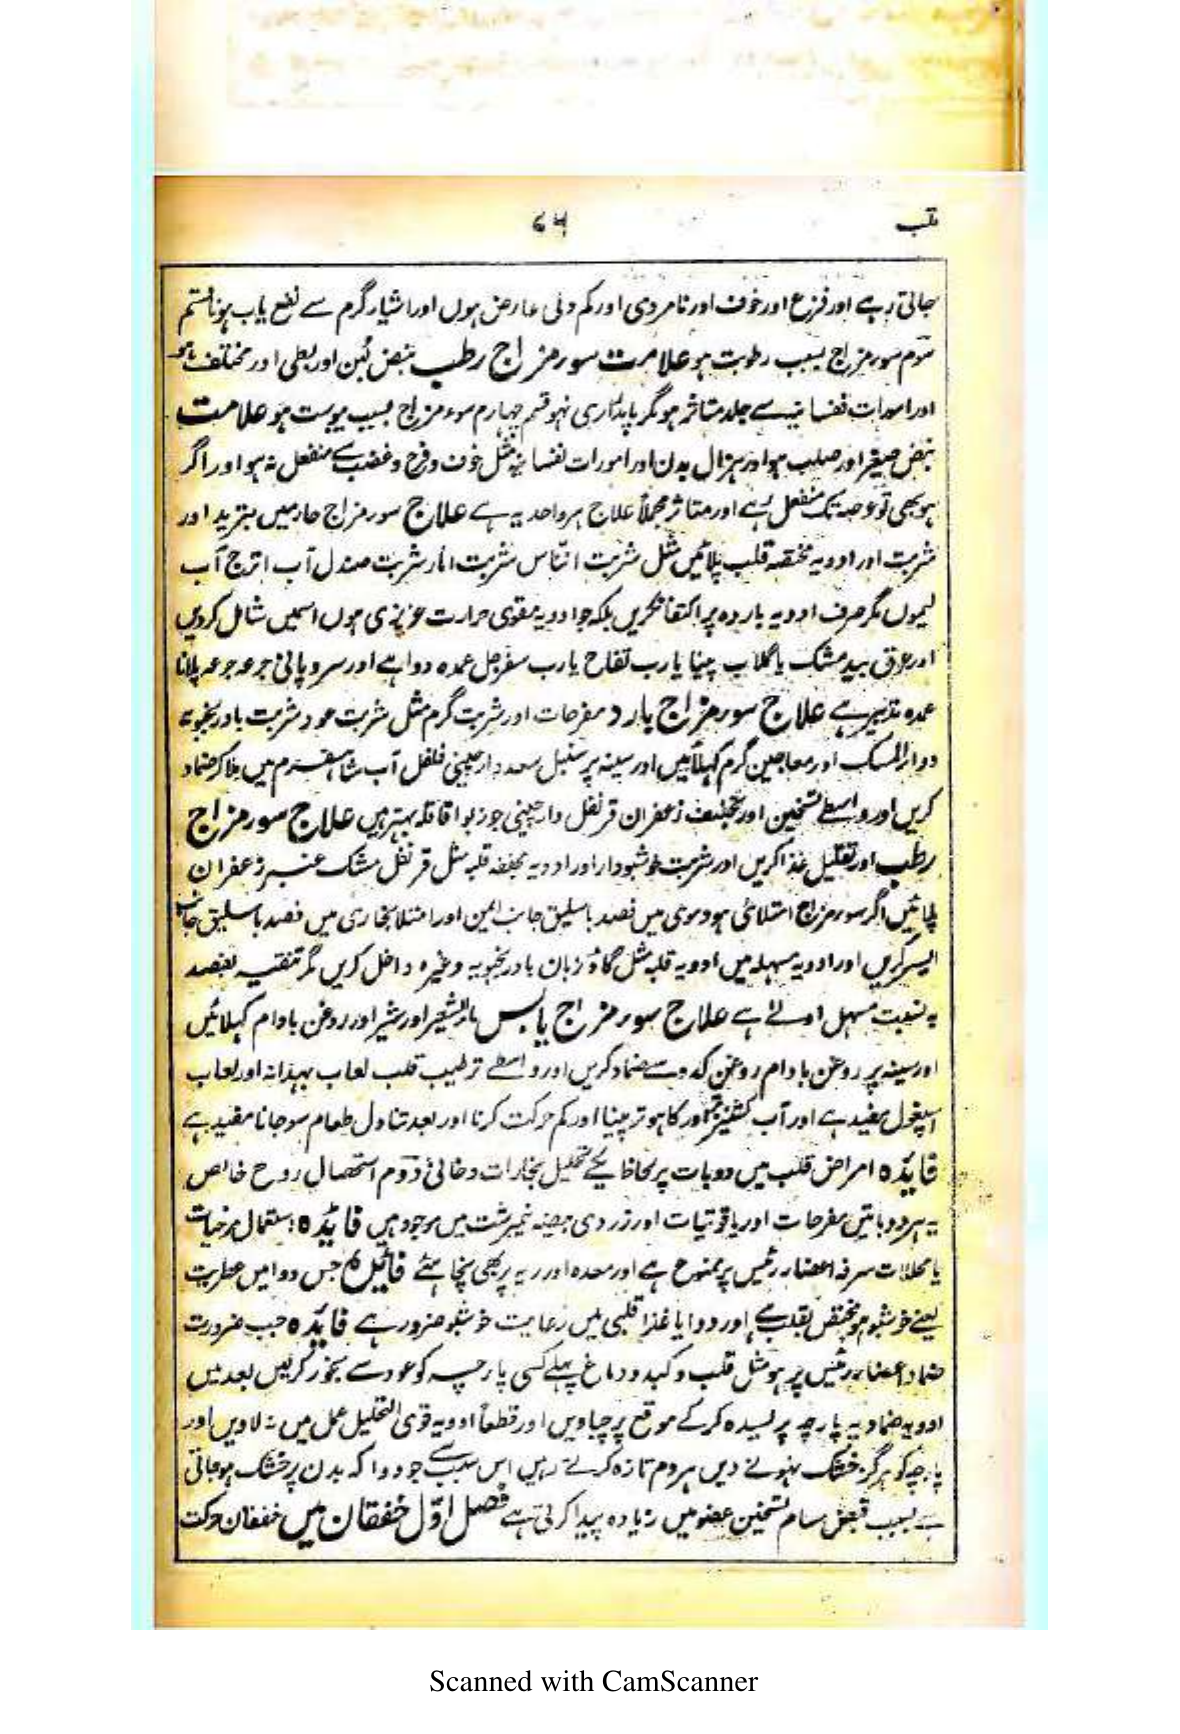 ۷۶
قلب
جاتی رہے اور فزع اور خوف اور نامردی اور کم دلی عارض ہوں اور اشیار گرم سے نفع یاب ہونا قسم
سوم سورمزاج بسبب رطوبت ہو علامت سورمزاج رطب نبض لین اور بطی اور مختلف ہو
اور امورات نفسانیہ سے جلد متاثر ہو مگر پایداری نہو قسم چہارم سوء مزاج بسبب یبوست ہو علامت
نبض صغیر اور صلب ہو اور ہزال بدن اور امورات نفسانیہ مثل خوف و فرح و غضب سے منفعل نہ ہو اور اگر
ہو بھی تو عرصہ تک منفعل رہے اور متاثر مجملاً علاج ہر واحد یہ ہے علاج سورمزاج حار میں بتبرید اور
شربت اور ادویہ مختصہ قلب پلائیں مثل شربت انناس شربت انار شربت صندل آب اترج آب
لیموں مگر صرف ادویہ باردہ پر اکتفا نکریں بلکہ جو ادویہ مقوی حرارت عزیزی ہوں اسمیں شامل کردیں
اور عرق بید مشک یا گلاب پینا یا رب تفاح یا رب سفرجل عمدہ دوا ہے اور سرد پانی جرعہ جرعہ پلانا
عمدہ تدبیر ہے علاج سورمزاج بارد مفرحات اور شربت گرم مثل شربت عود شربت بادرنجبویہ
دوار المسک اور معاجین گرم کہلائیں اور سینہ پر سنبل سعد دارچینی فلفل آب شاہسفرم میں ملا کر ضماد
کریں اور واسطے تسخین اور تجفیف زعفران قرنفل دارچینی جوزبوا قاقلہ بہتر ہیں علاج سورمزاج
رطب اور تقلیل غذا کریں اور شربت خوشبودار اور ادویہ مجففہ قلبہ مثل قرنفل مشک عنبر زعفران
پلائیں اگر سورمزاج امتلائی ہو دموی میں فصد باسلیق جانب ایمن اور امتلا بخاری میں فصد باسلیق جانب
ایسر کریں اور ادویہ مسہلہ میں ادویہ قلبہ مثل گاؤ زبان بادرنجبویہ وغیرہ داخل کریں مگر تنقیہ بفصد
بہ نسبت مسہل اولے ہے علاج سورمزاج یابس مار الشعیر اور شیر اور روغن بادام کہلائیں
اور سینہ پر روغن بادام روغن کدو سے ضماد کریں اور واسطے ترطیب قلب لعاب بہیدانہ اور لعاب
اسپغول مفید ہے اور آب کشنیز تر اور کاہو تر پینا اور کم حرکت کرنا اور بعد تناول طعام سو جانا مفید ہے
فایٔدہ امراض قلب میں دو بات پر لحاظ چاہیے تحلیل بخارات دخانی دوم استحصال روح خالص
یہ ہر دو باتیں مفرحات اور یاقوتیات اور زردی بیضہ نیمبرشت میں موجود ہیں فایٔدہ استعمال مرخیات
یا محللات صرفہ اعضار رئیس پر ممنوع ہے اور معدہ اور ریہ پر بھی نچاہئے فایٔدہ جس دوا میں عطریت
یعنے خوشبو ہو مختص بقلب ہے اور دوا یا غذا قلبی میں رعایت خوشبو ضرور ہے فایٔدہ جب ضرورت
ضماد اعضار رئیس پر ہو مثل قلب و کبد و دماغ پہلے کسی پارچہ کو عود سے بخور کریں بعد میں
ادویہ ضمادیہ پارچہ پر لسیدہ کر کے موقع پر چپاویں اور قطعاً ادویہ قوی التحلیل عمل میں نہ لاویں اور
پارچہ کو ہر گز خشک نہونے دیں ہر دم تازہ کرتے رہیں اس سبب سے جو دوا کہ بدن پر خشک ہو جاتی
ہے بسبب قبض مسام تسخین عضو میں زیادہ پیدا کرتی ہے فصل اوّل خفقان میں خفقان حرکت
Scanned with CamScanner